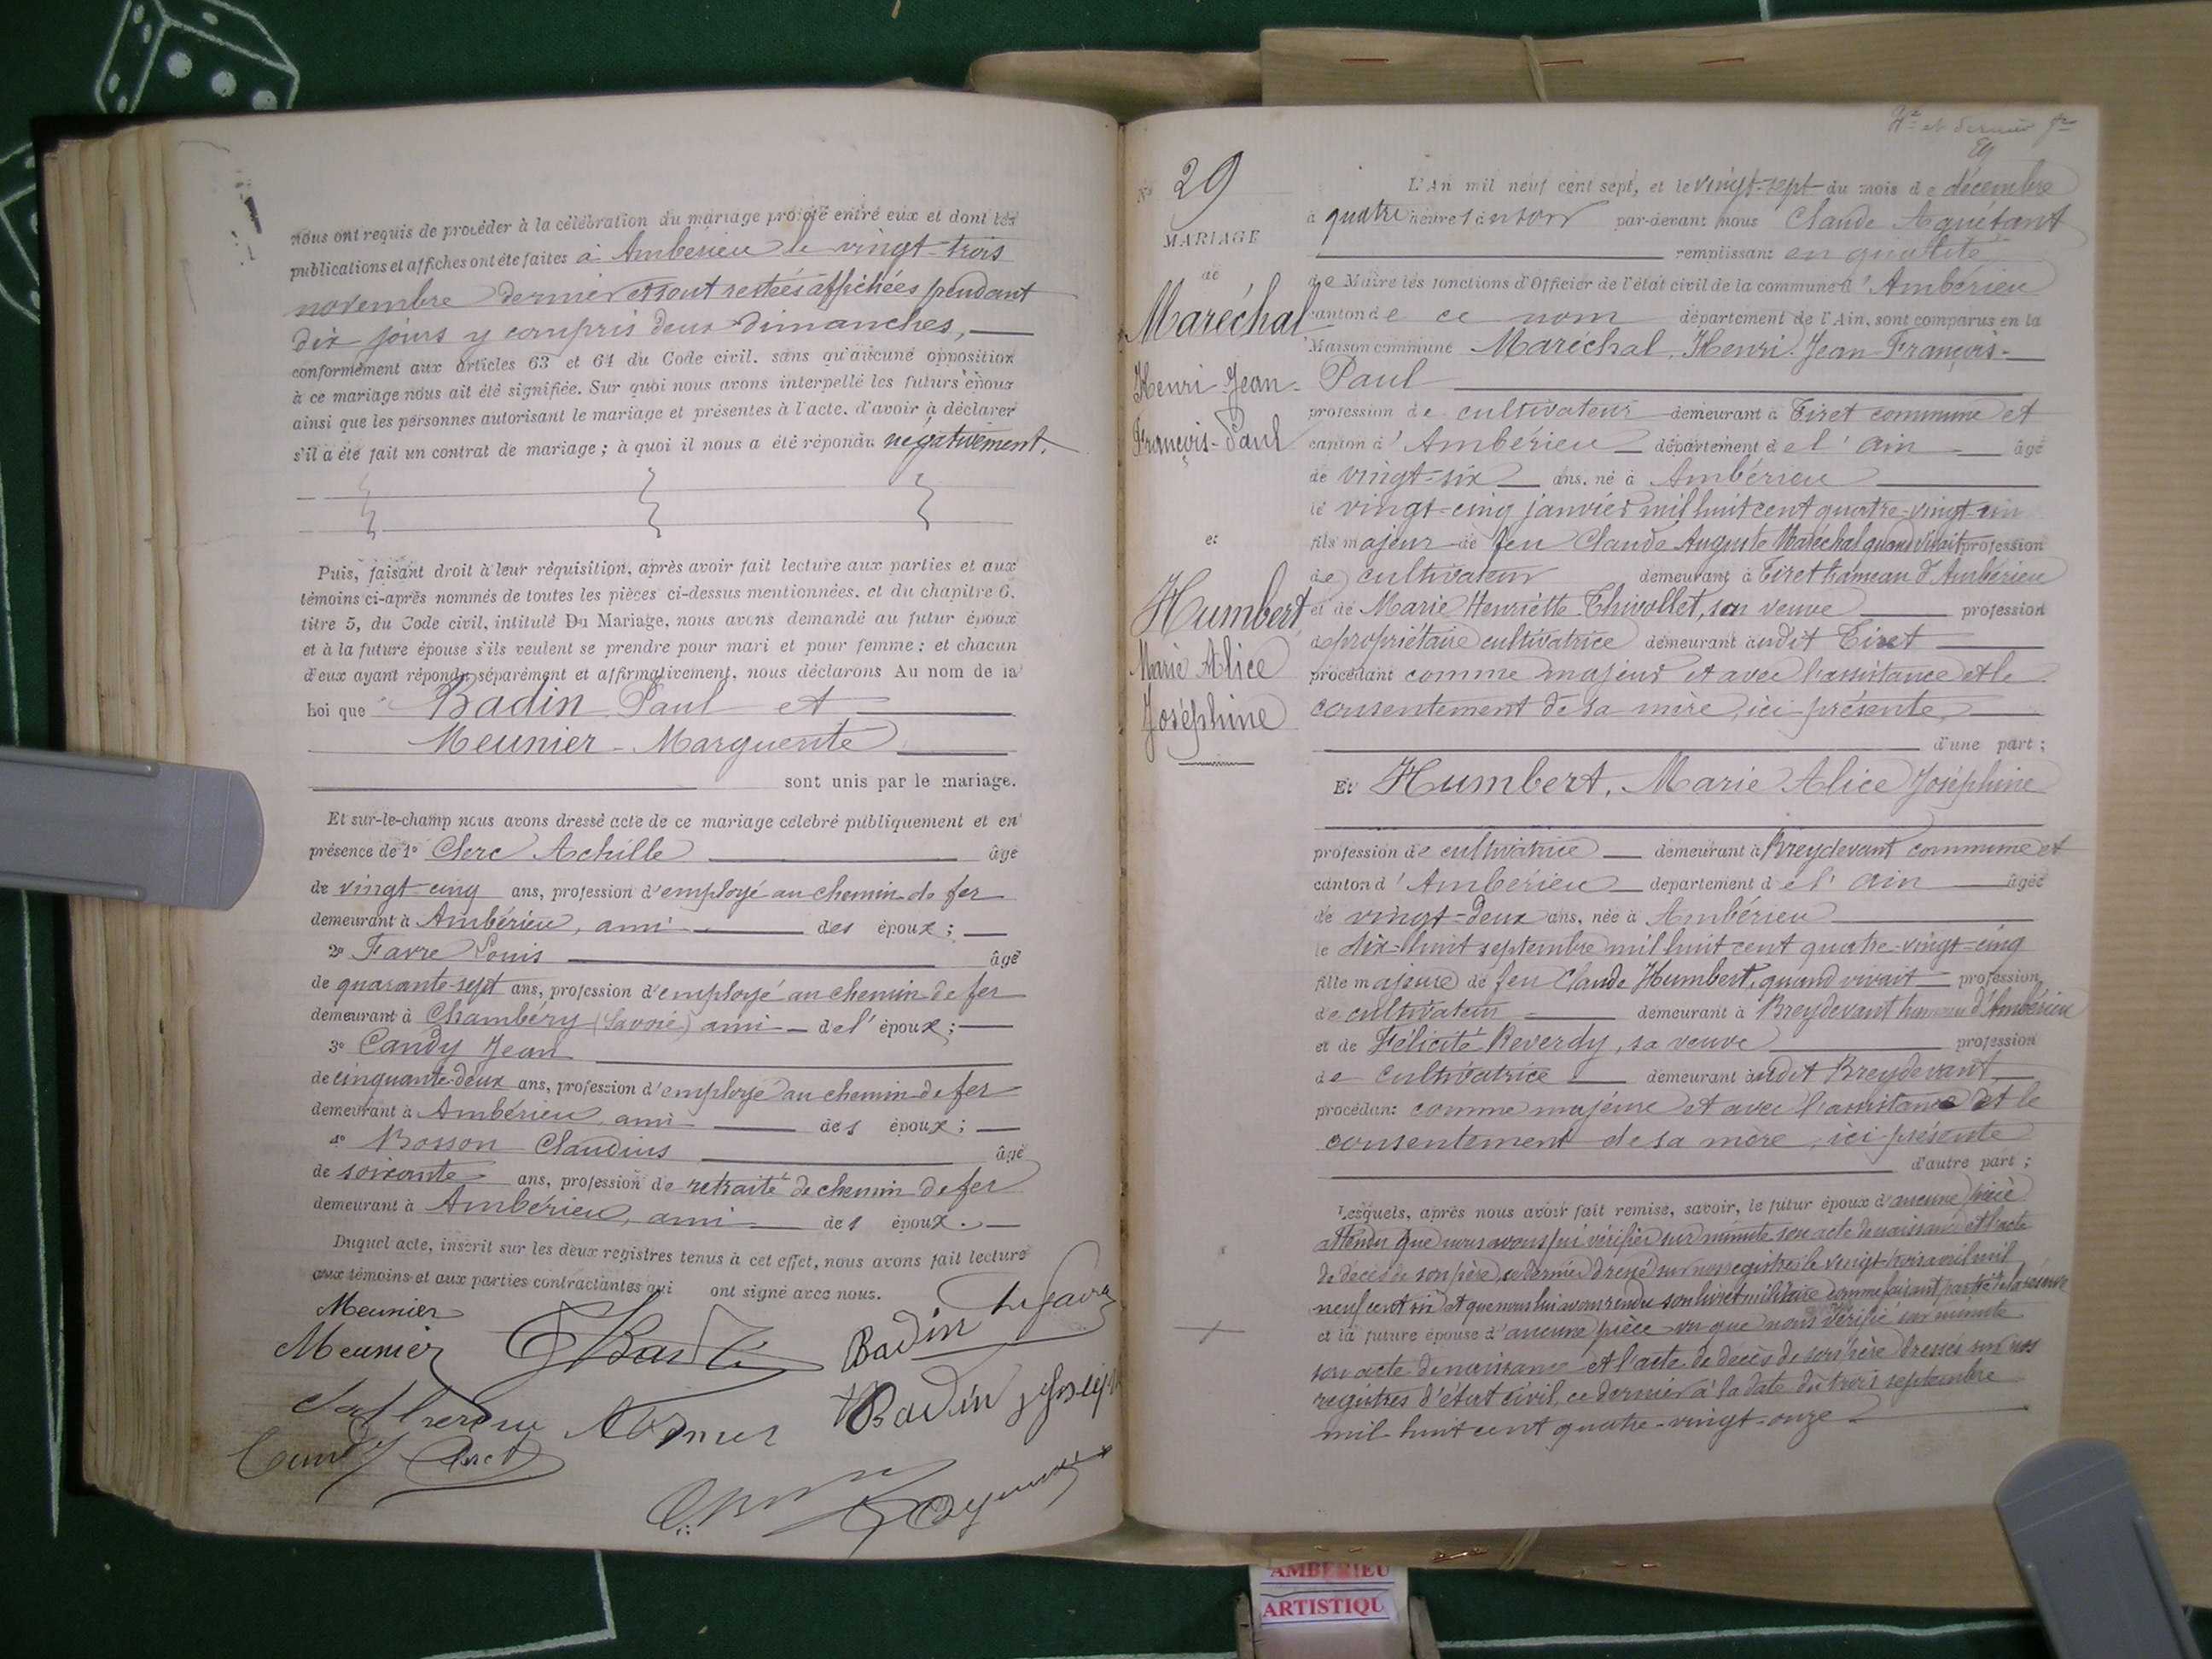 nous ont requis de procéder à la célébration du mariage projeté entre eux et dont les
publications et affiches ont été faites à Ambérieu le vingt-trois
novembre dernier et sont restées affichées pendant
dix jours y compris deux dimanches,
conformément aux articles 63 et 64 du Code civil, sans qu'aucune opposition
à ce mariage nous ait été signifiée. Sur quoi nous avons interpellé les futurs époux
ainsi que les personnes autorisant le mariage et présentes à l'acte, d'avoir à déclarer
s'il a été fait un contrat de mariage; à quoi il nous a été répondu négativement.
Puis, faisant droit à leur réquisition, après avoir fait lecture aux parties et aux
témoins ci-après nommés de toutes les pièces ci-dessus mentionnées, et du chapitre 6,
titre 5, du Code civil, intitulé Du Mariage, nous avons demandé au futur époux
et à la future épouse s'ils veulent se prendre pour mari et pour femme; et chacun
d'eux ayant répondu séparément et affirmativement, nous déclarons Au nom de la
Loi que Badin Paul et
Meunier - Marguerite
sont unis par le mariage.
Et sur-le-champ nous avons dressé acte de ce mariage célébré publiquement et en
présence de 1° Clerc Achille âgé
de vingt-cinq ans, profession d'employé au chemin de fer
demeurant à Ambérieu, ami des époux;
2° Favre Louis âgé
de quarante-sept ans, profession d'employé au chemin de fer
demeurant à Chambéry (Savoie) ami - de l'époux;
3° Candy Jean
de cinquante-deux ans, profession d'employé au chemin de fer
demeurant à Ambérieu, ami des époux;
4° Bosson Claudius âgé
de soixante ans, profession de retraité de chemin de fer
demeurant à Ambérieu, ami des époux.
Duquel acte, inscrit sur les deux registres tenus à cet effet, nous avons fait lecture
aux témoins et aux parties contractantes qui ont signé avec nous.
Meunier
Meunier Badin
Badin Joseph
Candy Clerc
N° 29
MARIAGE
de
Maréchal
Henri-Jean-
François-Paul
et
Humbert
Marie Alice
Joséphine
L'An mil neuf cent sept, et le vingt-sept du mois de décembre
à quatre heures du soir par-devant nous Claude Aguétant
remplissant en qualité
de Maire les fonctions d'Officier de l'état civil de la commune d'Ambérieu
canton de ce nom département de l'Ain, sont comparus en la
Maison commune Maréchal, Henri-Jean-François-
Paul
profession de cultivateur demeurant à Tiret commune et
canton d'Ambérieu département de l'Ain âgé
de vingt-six ans, né à Ambérieu
le vingt-cinq janvier mil huit cent quatre-vingt-un
fils majeur de feu Claude Auguste Maréchal quand vivait profession
de cultivateur demeurant à Tiret hameau d'Ambérieu
et de Marie Henriette Thivollet, sa veuve profession
de propriétaire cultivatrice demeurant audit Tiret
procédant comme majeur et avec l'assistance et le
consentement de sa mère, ici présente,
d'une part;
Et Humbert, Marie Alice Joséphine
profession de cultivatrice demeurant à Breydevant commune et
canton d'Ambérieu département de l'Ain âgée
de vingt-deux ans, née à Ambérieu
le dix-huit septembre mil huit cent quatre-vingt-cinq
fille majeure de feu Claude Humbert, quand vivait profession
de cultivateur demeurant à Breydevant hameau d'Ambérieu
et de Félicité Reverdy, sa veuve profession
de cultivatrice demeurant audit Breydevant
procédant comme majeure et avec l'assistance et le
consentement de sa mère, ici présente
d'autre part;
Lesquels, après nous avoir fait remise, savoir, le futur époux d'aucune pièce
attendu que nous avons pu vérifier sur minute son acte de naissance et l'acte
de décès de son père, ce dernier dressé sur nos registres le vingt-trois avril mil
neuf cent six et que nous lui avons rendu son livret militaire comme faisant partie de la réserve
et la future épouse d'aucune pièce vu que nous avons vérifié sur minute
son acte de naissance et l'acte de décès de son père dressés sur nos
registres d'état civil, ce dernier à la date du trois septembre
mil huit cent quatre-vingt-onze
AMBERIEU
ARTISTIQU